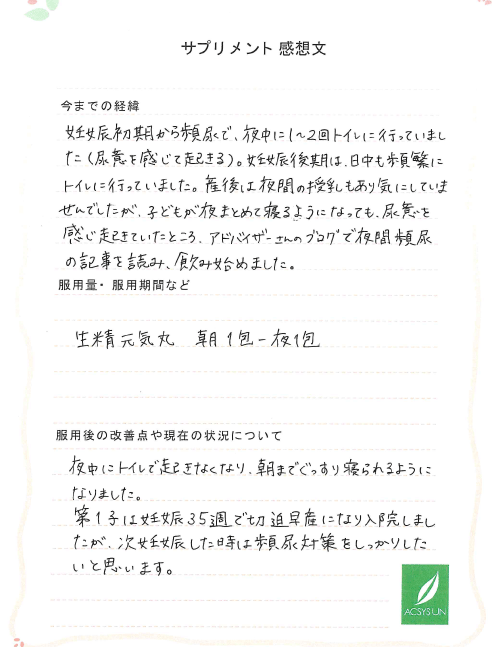 サプリメント 感想文
今までの経緯
妊娠初期から頻尿で、夜中に1〜2回トイレに行っていまし
た(尿意を感じて起きる)。妊娠後期は、日中も頻繁に
トイレに行っていました。産後は夜間の授乳もあり気にしていま
せんでしたが、子どもが夜まとめて寝るようになっても、尿意を
感じ起きていたところ、アドバイザーさんのブログで夜間頻尿
の記事を読み、飲み始めました。
服用量・服用期間など
生精元気丸 朝1包-夜1包
服用後の改善点や現在の状況について
夜中にトイレで起きなくなり、朝までぐっすり寝られるように
なりました。
第1子は妊娠35週で切迫早産になり入院しまし
たが、次妊娠した時は頻尿対策をしっかりした
いと思います。
ACSYSUN